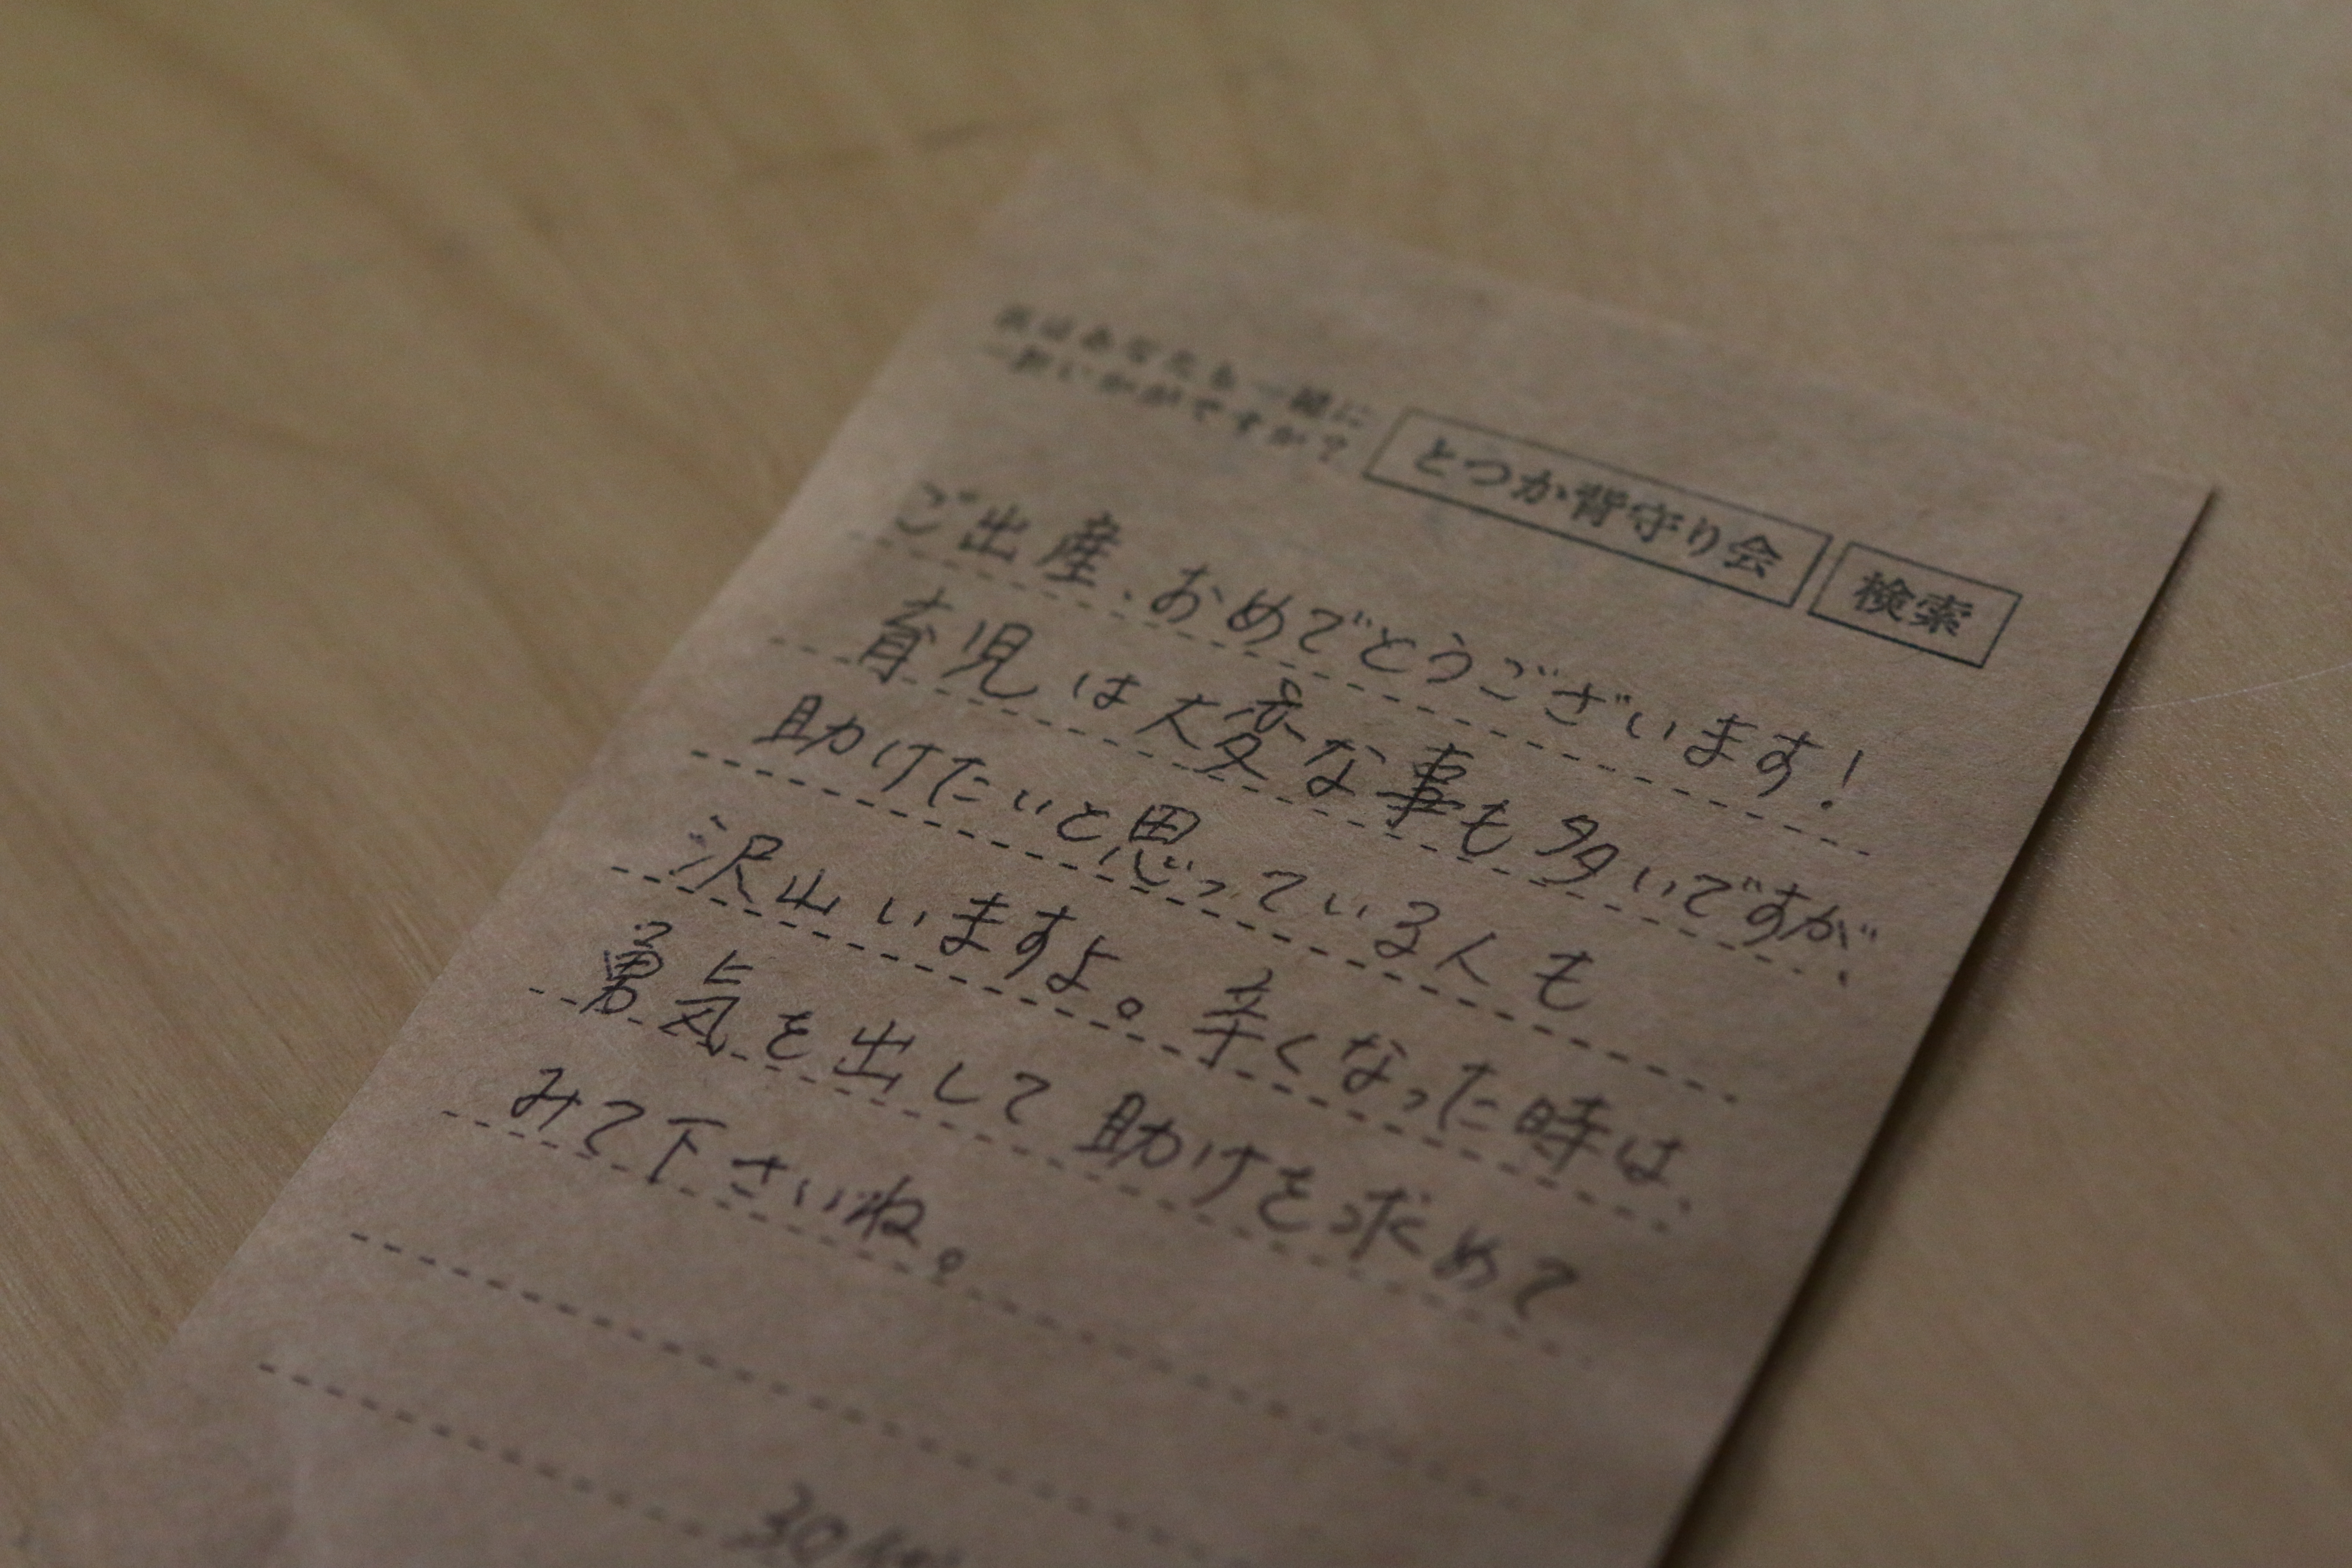 次はあなたも一緒に
一針いかがですか?
とつか背守り会 検索
ご出産、おめでとうございます!
育児は大変な事も多いですが、
助けたいと思っている人も
沢山いますよ。辛くなった時は、
勇気を出して助けを求めて
みて下さいね。
30代